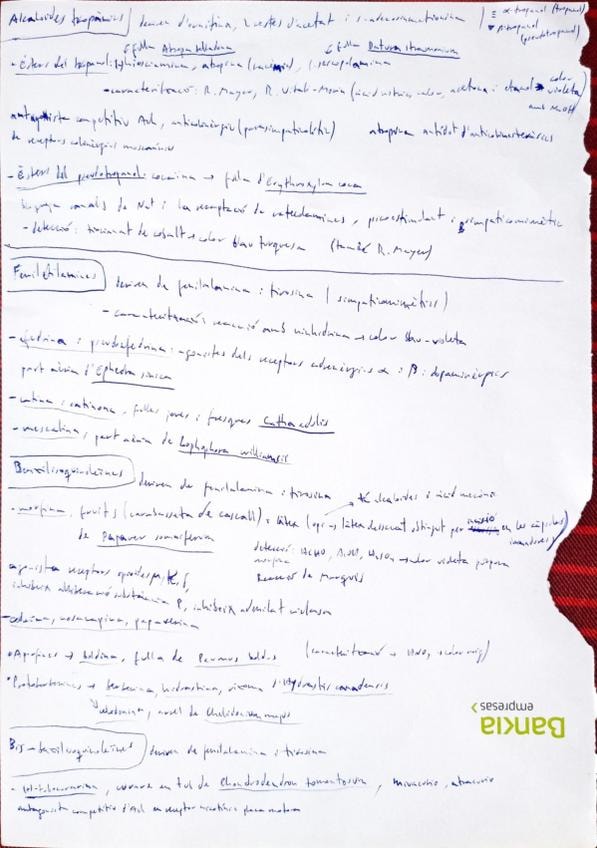 Alcaloides tropànics deriven d'ornitina, 2 restes d'acetat i s-adenosinmetionina
α-tropanol (tropanol)
β-tropanol (pseudotropanol)
fulla Atropa belladona
fulla Datura stramonium
- Èsters del tropanol: hiosciamina, atropina, escopolamina
- caracterització: R. Mayer, R. Vitali-Morin (àcid nítric, calor, acetona i etanol → color violeta
amb KOH
antagonista competitiu Ach, anticolinèrgic (parasimpaticolític) atropina antídot d'anticolinesteràsics
de receptors colinèrgics muscarínics
- Èsters del pseudotropanol: cocaïna → fulla d'Erythroxylon coca
bloqueja canals de Na+ i la recaptació de catecolamines, psicoestimulant i simpaticomimètic
- detecció: tiocianat de cobalt → color blau turquesa (també R. Mayer)
Feniletilamines deriven de fenilalanina i tirosina (simpaticomimètics)
- caracterització: reacció amb ninhidrina → color blau-violeta
- efedrina i pseudoefedrina: agonistes dels receptors adrenèrgics α i β i dopaminèrgics
part aèria d'Ephedra sinica
- catina i catinona, fulles joves i fresques Catha edulis
- mescalina, part aèria de Lophophora williamsii
Bencilisoquinoleïnes deriven de fenilalanina i tirosina
té alcaloides i àcid mecònic
- morfina, fruits (carabasseta de cascall) i làtex (opi → làtex dessecat obtingut per incisió en les càpsules
immadures)
de Papaver somniferum
detecció morfina: → color violeta púrpura
Reacció de Marquis
agonista receptors opioides μ, K, δ,
inhibeix alliberació substància P, inhibeix adenilat ciclasa
- codeïna, noscapina, papaverina
• Aporfines → boldina, fulla de Peumus boldus (caracterització → HNO3 → color roig)
• Protoberberines → berberina, hidrastina, rizoma d'Hydrastis canadensis
quelidonina, arrel de Chelidonium majus
Bankia
empresas
Bis-bencilisoquinoleïnes deriven de fenilalanina i tirosina
- tubocurarina, curare en tub de Chondrodendron tomentosum, mivacurio, atracurio
antagonista competitiu d'Ach en receptor nicotínic placa motora